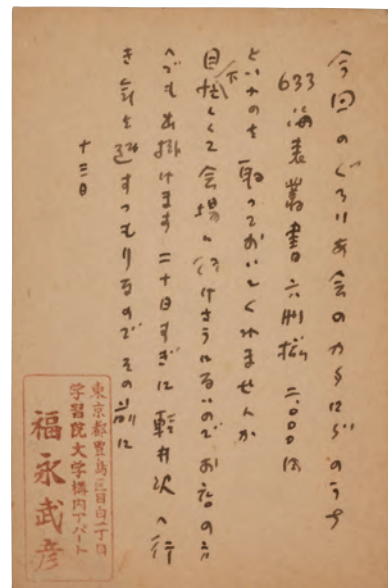 今回のぐろりあ会のカタログのうち
633 海表叢書 六冊揃 二、〇〇〇円
といふのを 取っておいてくれませんか
目下忙しくて会場へ行けさうにないのでお店の方
へでも出掛けます 二十日すぎに軽井沢へ行
き気を遣すつもりなので その前に
十三日
東京都豊島区目白一丁目
学習院大学構内アパート
福永武彦